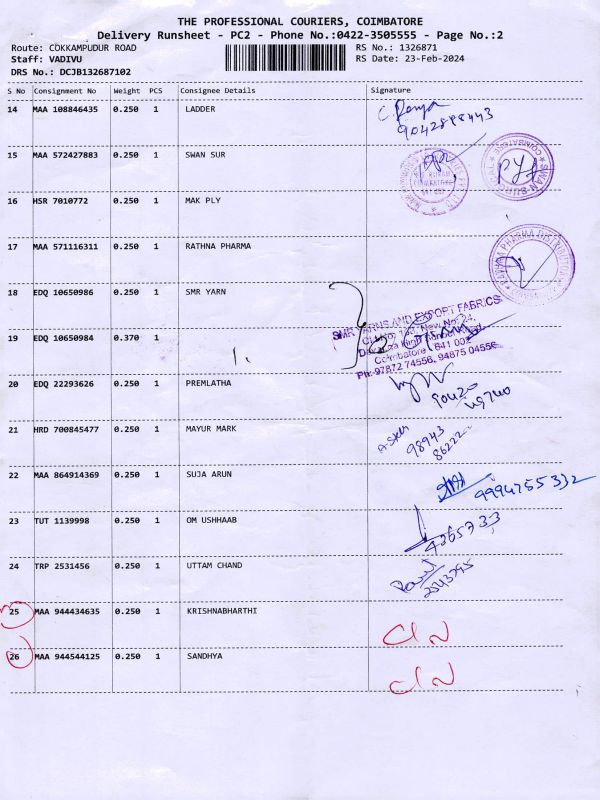 THE PROFESSIONAL COURIERS, COIMBATORE
Delivery Runsheet - PC2 - Phone No.:0422-3505555 - Page No.:2
Route: COKKAMPUDUR ROAD RS No.: 1326871
Staff: VADIVU RS Date: 23-Feb-2024
DRS No.: DCJB132687102
S No Consignment No Weight PCS Consignee Details Signature
14 MAA 108846435 0.250 1 LADDER
15 MAA 572427883 0.250 1 SWAN SUR
16 HSR 7010772 0.250 1 MAK PLY
17 MAA 571116311 0.250 1 RATHNA PHARMA
18 EDQ 10650986 0.250 1 SMR YARN
SMR YARNS AND EXPORT FABRICS
19 EDQ 10650984 0.370 1
Coimbatore - 641 00
Ph: 97872 74556, 94875 04556
20 EDQ 22293626 0.250 1 PREMLATHA
21 HRD 700845477 0.250 1 MAYUR MARK
98943
86222
22 MAA 864914369 0.250 1 SUJA ARUN
9994755332
23 TUT 1139998 0.250 1 OM USHHAAB
4365733
24 TRP 2531456 0.250 1 UTTAM CHAND
2543795
25 MAA 944434635 0.250 1 KRISHNABHARTHI
26 MAA 944544125 0.250 1 SANDHYA